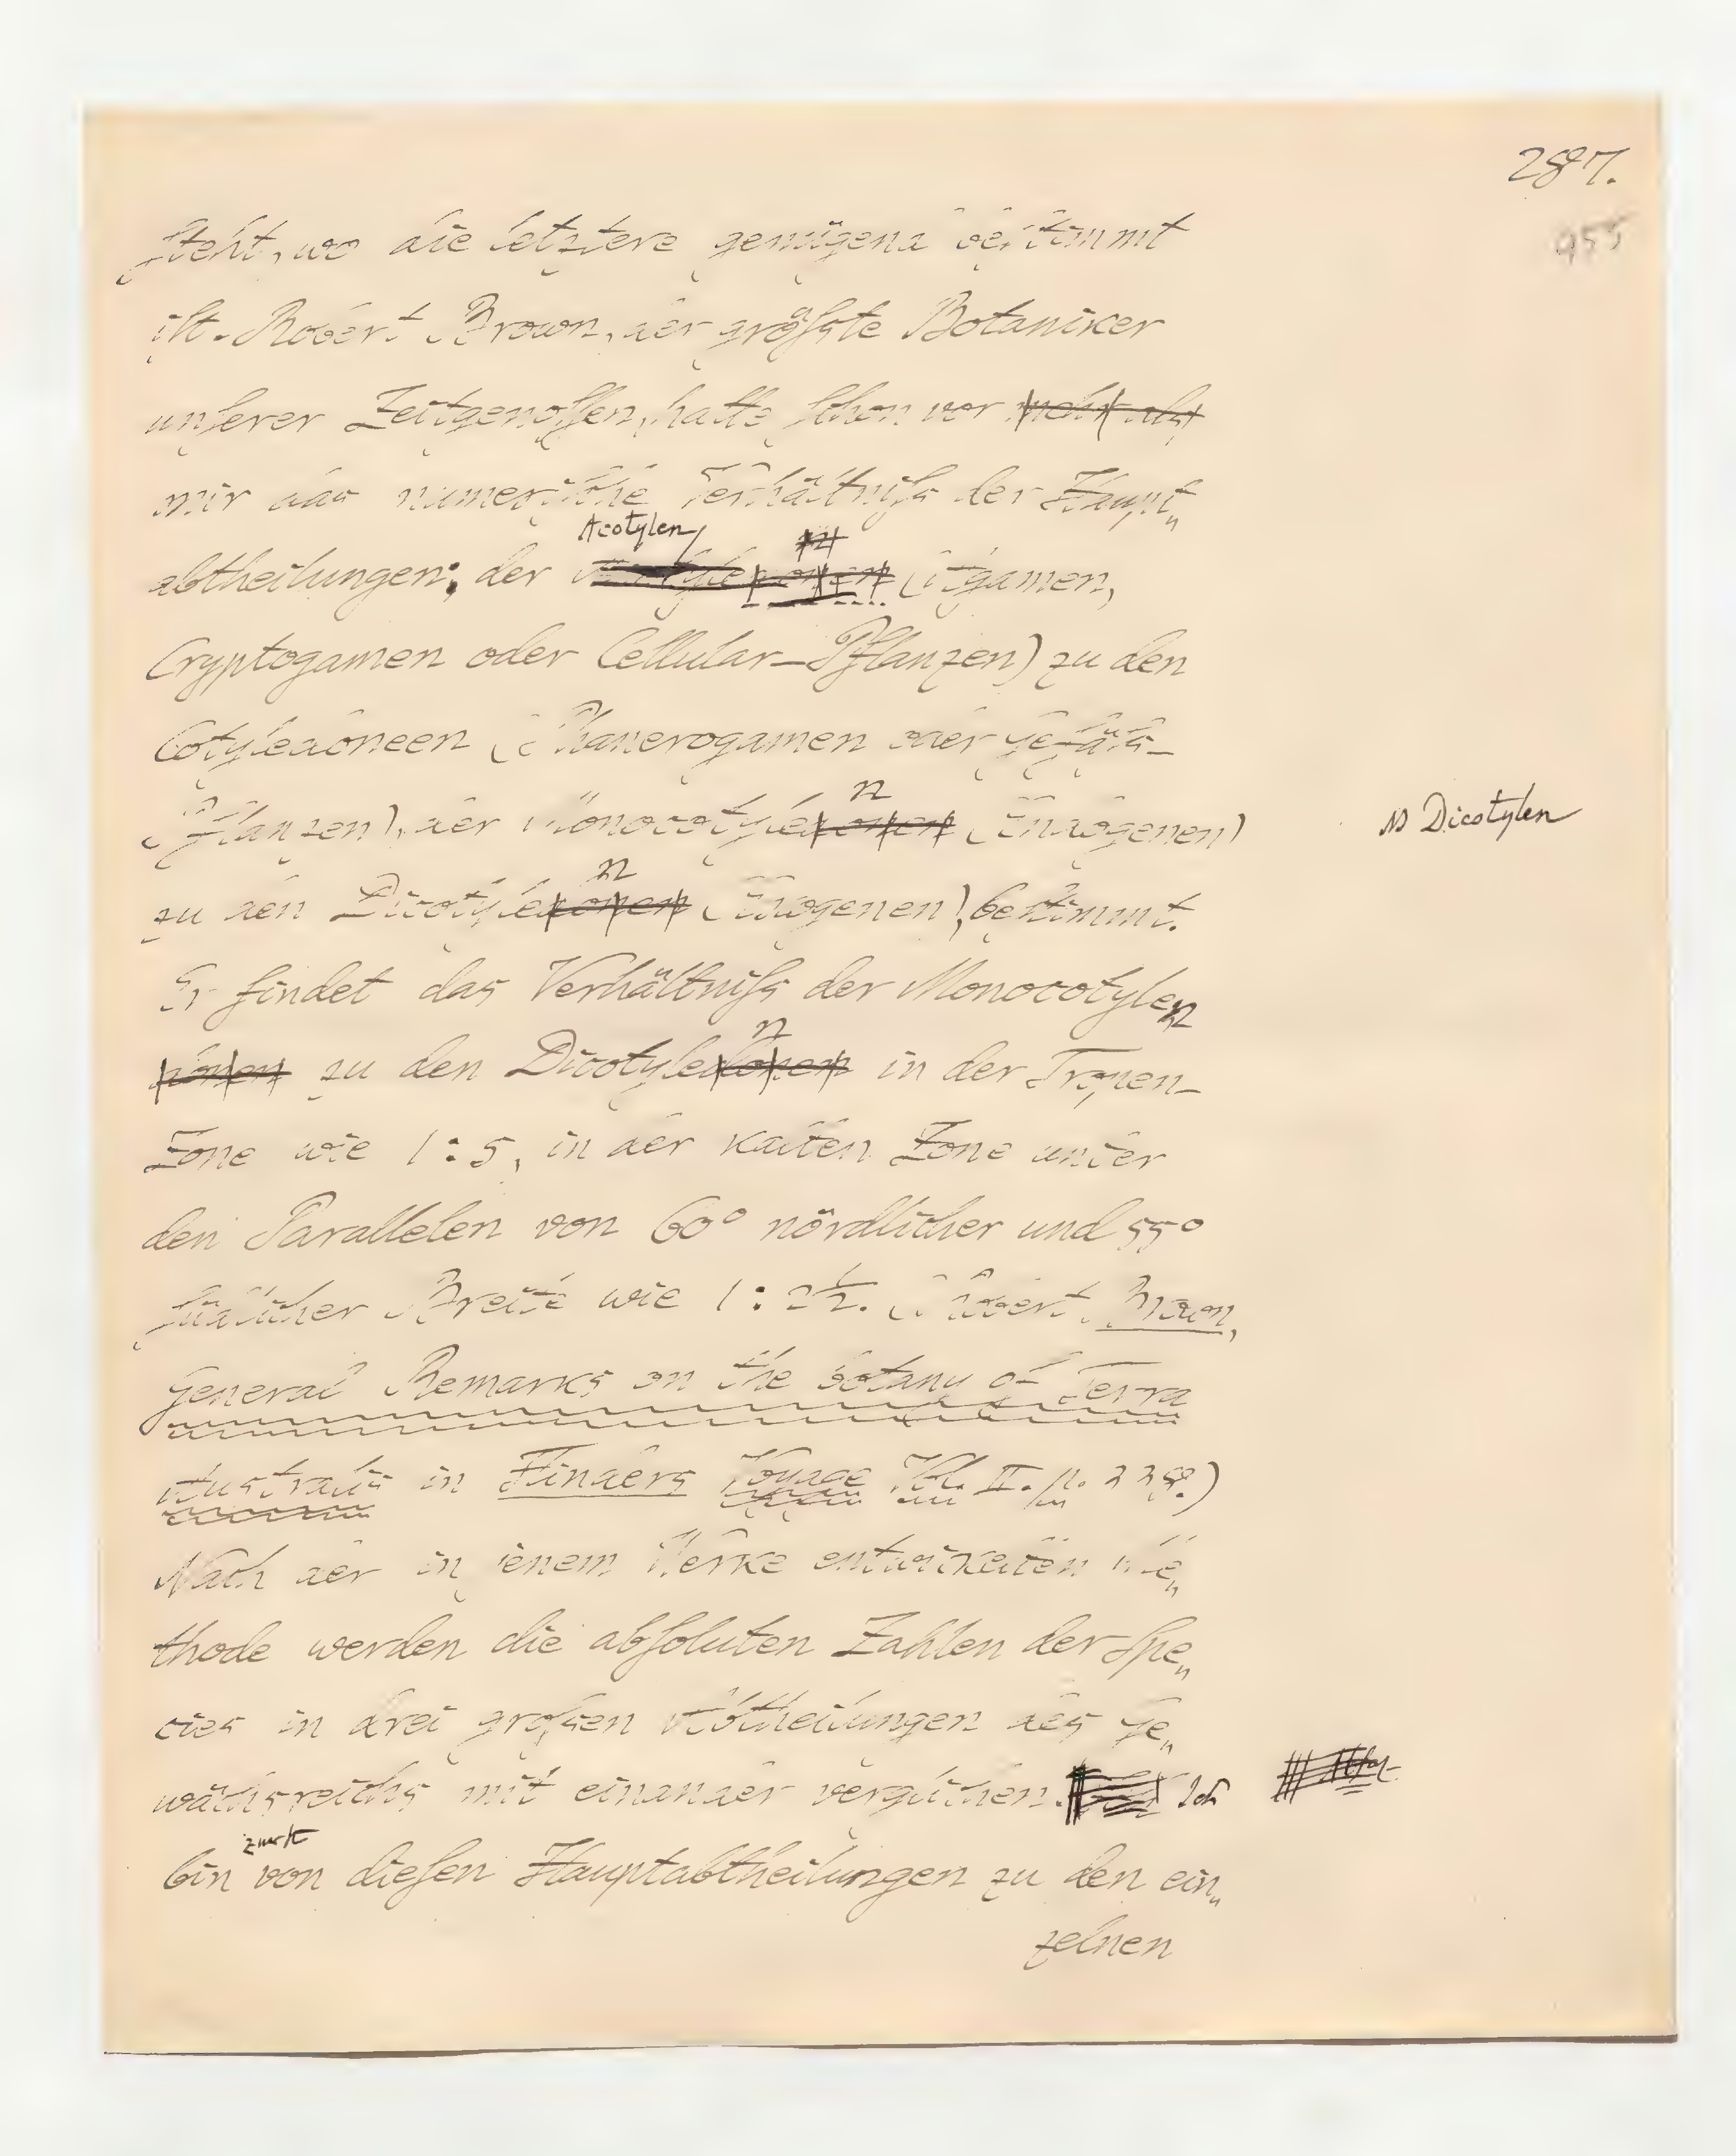 287.
955
steht, wo die letztere genügend bestimmt
ist. Robert Brown, der größte Botaniker
unserer Zeitgenossen, hatte schon vor mehr als
mir das numerische Verhältniß der Haupt„
Acotylen
abtheilungen; der (Agamen,
Cryptogamen oder Cellular-Pflanzen) zu den
Cotyledoneen (Phanerogamen oder Gefäß-
n
Pflanzen), der Monocotyledonen (Endogenen)
Dicotylen
n
zu den Dicotyledonen (Exogenen), bestimmt.
Er findet das Verhältniß der Monocotylen
n
donen zu den Dicotyledonen in der Tropen-
Zone wie 1:5, in der kalten Zone unter
den Parallelen von 60° nördlicher und 55°
südlicher Breite wie 1:2½. (Robert Brown,
General Remarks on the botany of Terra
Australis in Flinders Voyage Vol. II. p. 338.)
Nach der in jenem Werke entwickelten Me„
thode werden die absoluten Zahlen der Spe„
cies in drei großen Abtheilungen des Ge„
wächsreichs mit einander verglichen. Ich
zuerst
bin von diesen Hauptabtheilungen zu den ein„
zelnen